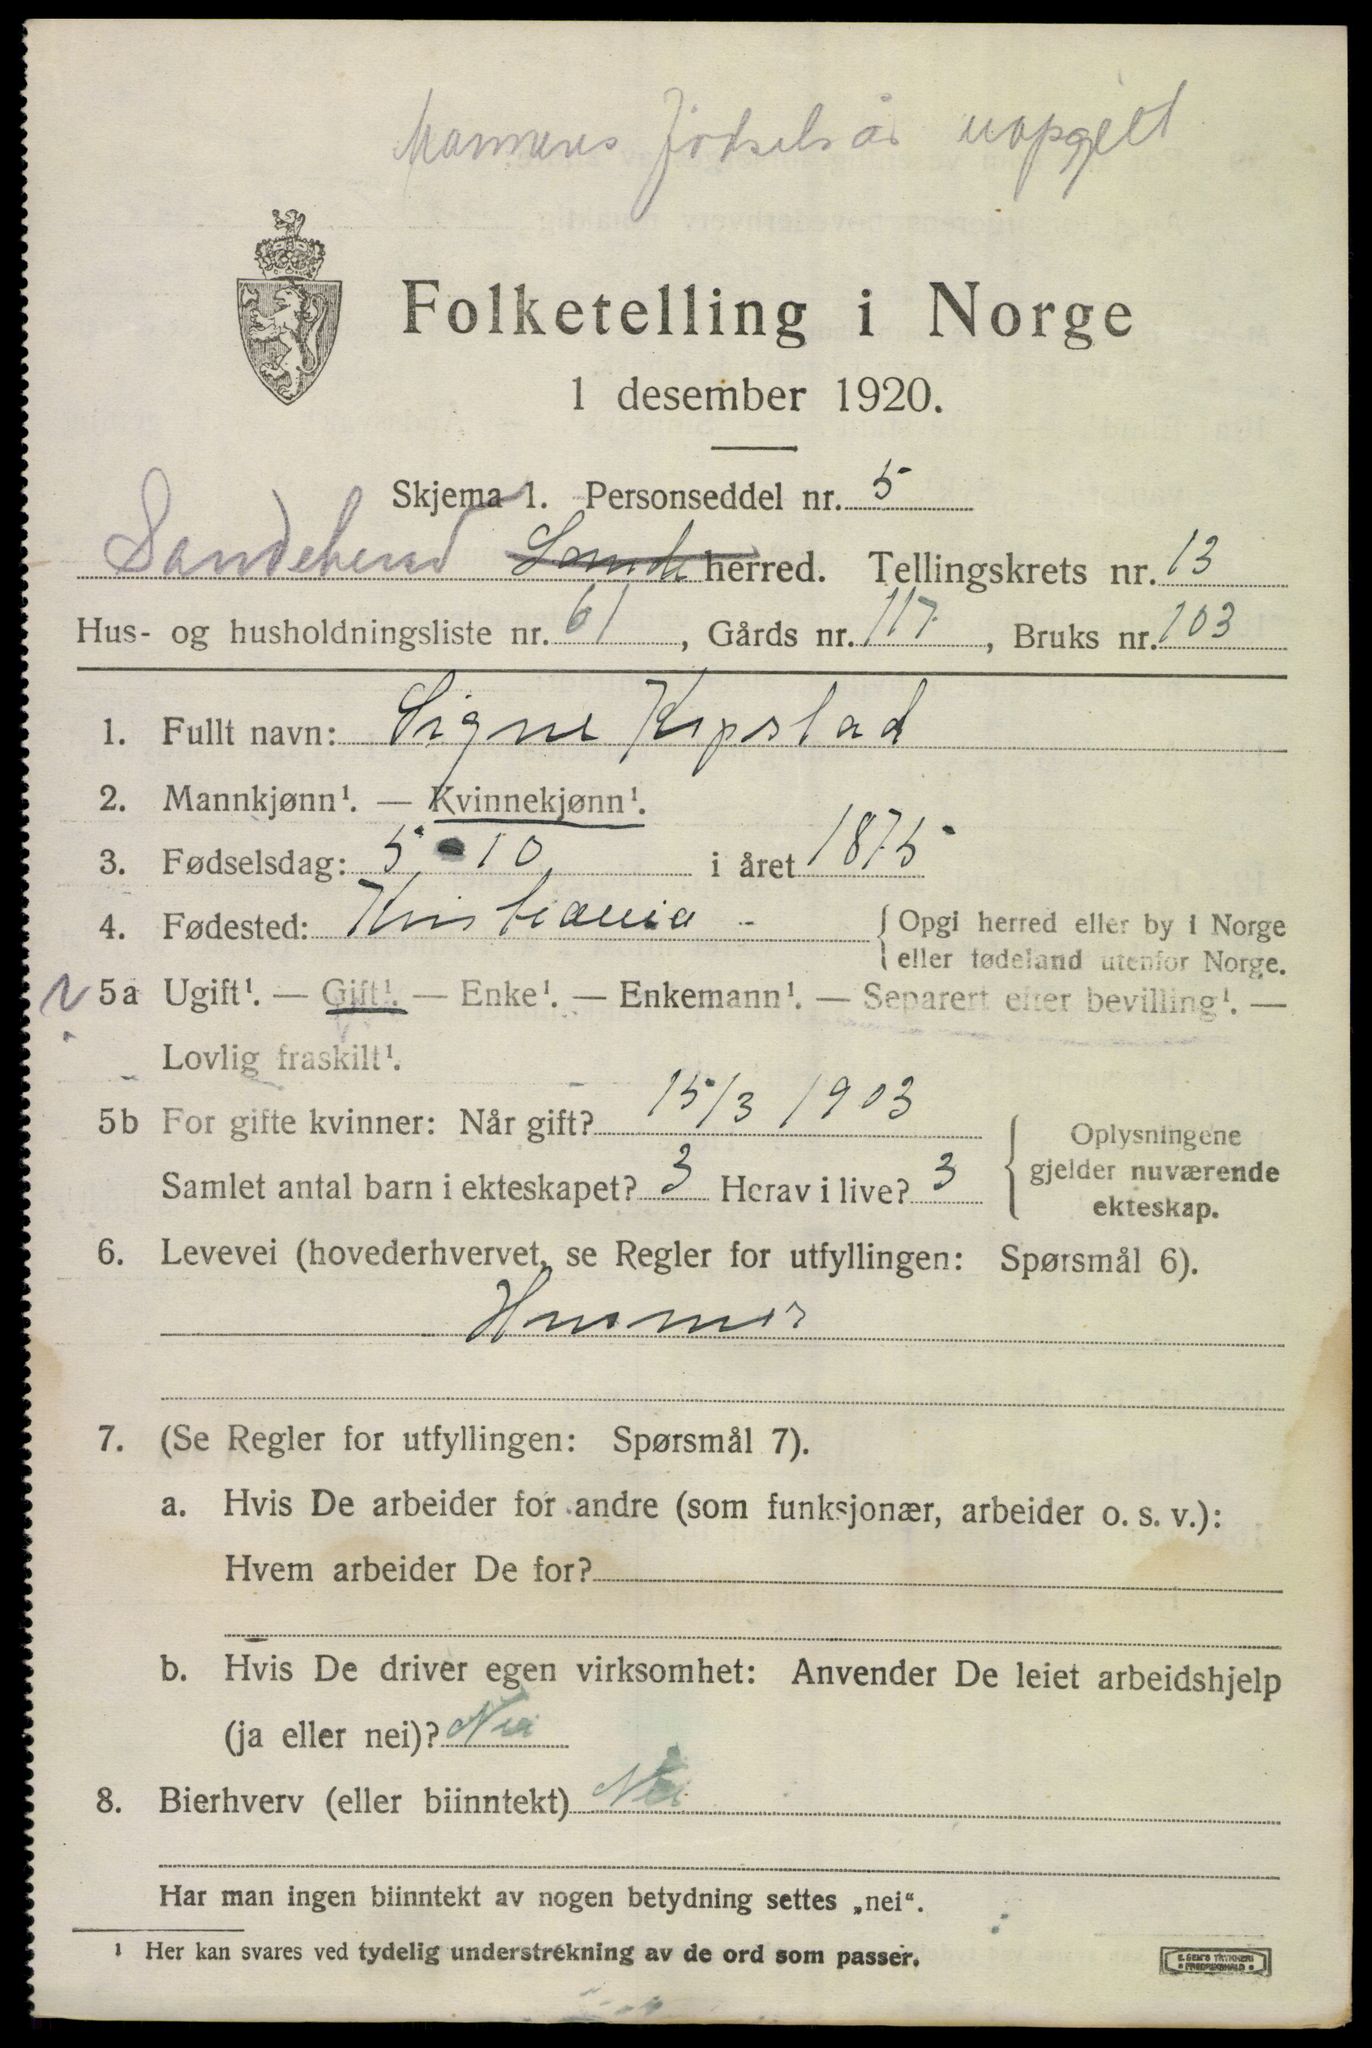 Mannens fødselsår uopgit
Folketelling i Norge
1 desember 1920.
Skjema 1. Personseddel nr. 5
Sandeherred Sande herred. Tellingskrets nr. 13
Hus- og husholdningsliste nr. 61, Gårds nr. 117, Bruks nr. 103
1. Fullt navn: Signe Kopstad
2. Mannkjønn¹. — Kvinnekjønn¹.
3. Fødselsdag: 5-10 i året 1875
4. Fødested: Kristiania - { Opgi herred eller by i Norge
eller fødeland utenfor Norge.
5a Ugift¹. — Gift¹. — Enke¹. — Enkemann¹. — Separert efter bevilling¹. —
Lovlig fraskilt¹.
5b For gifte kvinner: Når gift? 15/3 1903
Samlet antal barn i ekteskapet? 3 Herav i live? 3
{ Oplysningene
gjelder nuværende
ekteskap.
6. Levevei (hovederhvervet, se Regler for utfyllingen: Spørsmål 6).
Husmor
7. (Se Regler for utfyllingen: Spørsmål 7).
a. Hvis De arbeider for andre (som funksjonær, arbeider o. s. v.):
Hvem arbeider De for?
b. Hvis De driver egen virksomhet: Anvender De leiet arbeidshjelp
(ja eller nei)? Nei
8. Bierhverv (eller biinntekt) Nei
Har man ingen biinntekt av nogen betydning settes „nei“.
¹ Her kan svares ved tydelig understrekning av de ord som passer.
E. SEM'S TRYKKERI
FREDRIKSHALD